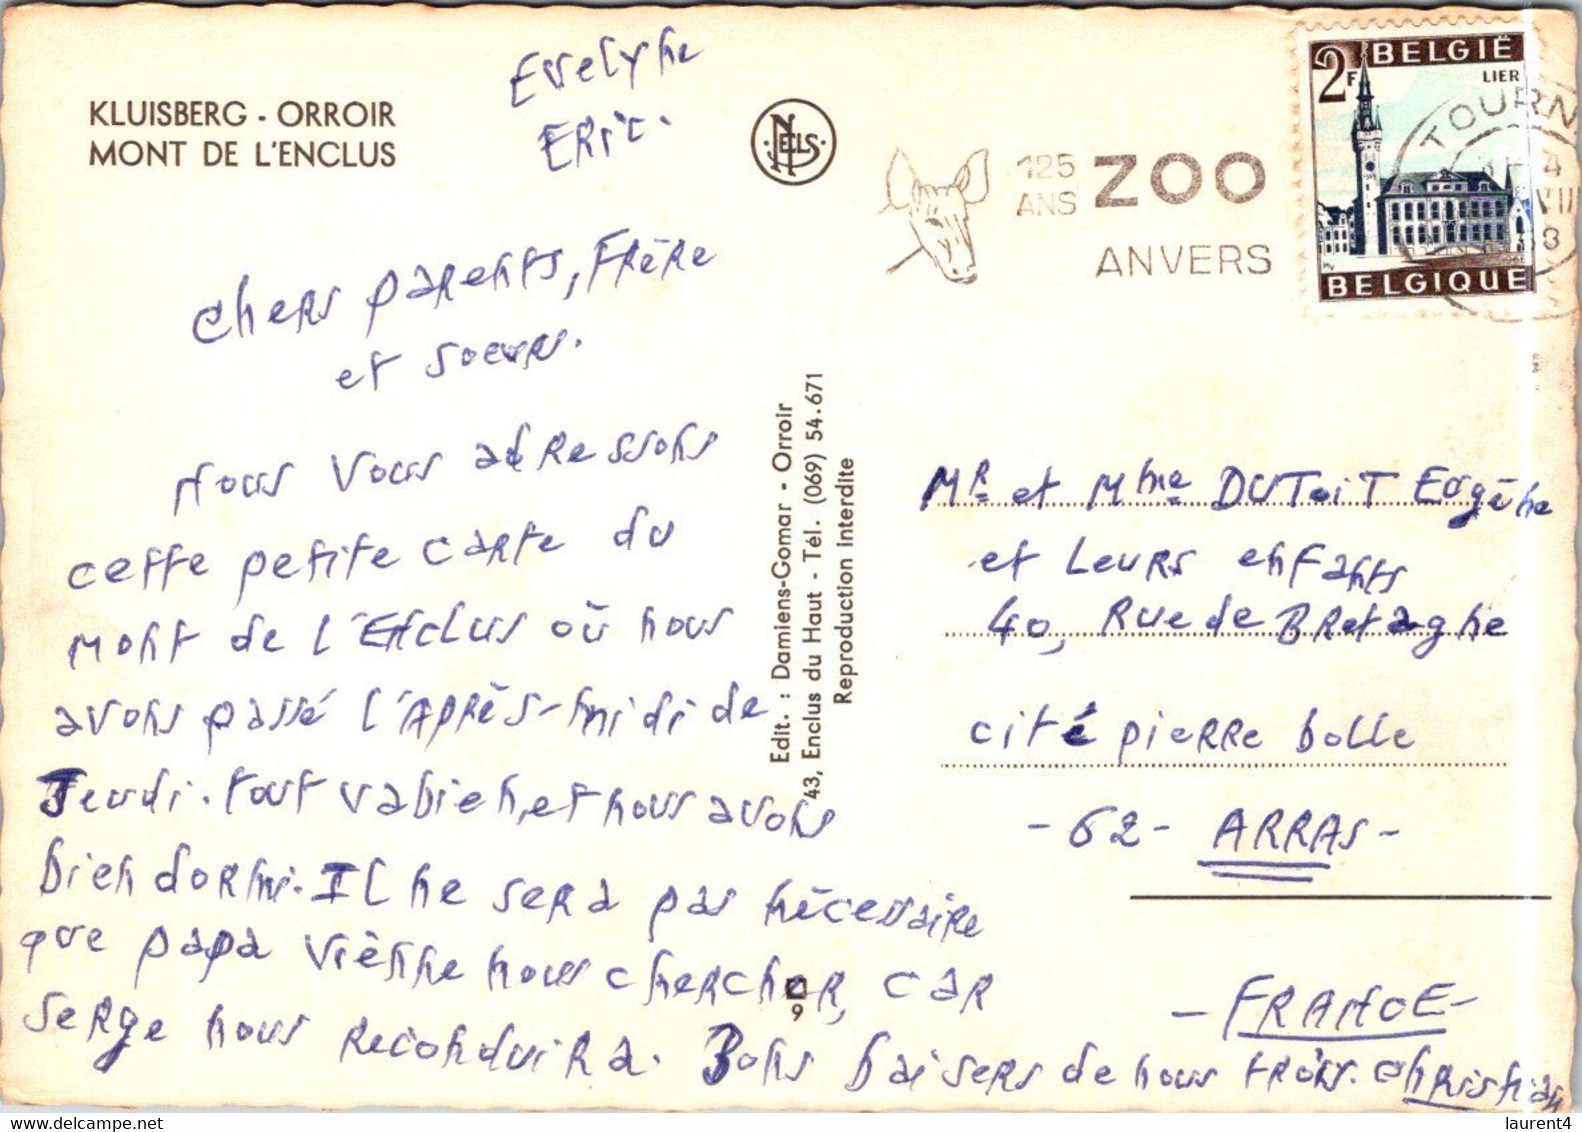 KLUISBERG - ORROIR
MONT DE L'ENCLUS
Evelyne
ERic.
chers parents, Frère
et soeurs.
Nous vous adressons
cette petite carte du
Mont de l'Enclus où nous
avons passé l'après-midi de
Jeudi. tout va bien, et nous avons
bien dormi. Il ne sera pas nécessaire
que papa viènne nous chercher, car
serge nous reconduira. Bons baisers de nous trois. christian
NELS
Edit. : Damiens-Gomar - Orroir
43, Enclus du Haut - Tél. (069) 54.671
Reproduction interdite
9
125
ANS
ZOO
ANVERS
2F
BELGIË
LIER
BELGIQUE
TOURN
4
VII
68
Mr et Mme DUToiT Eugène
et Leurs enfants
40, Rue de Bretagne
cité pierre bolle
- 62 - ARRAS -
- FRANCE -
laurent4